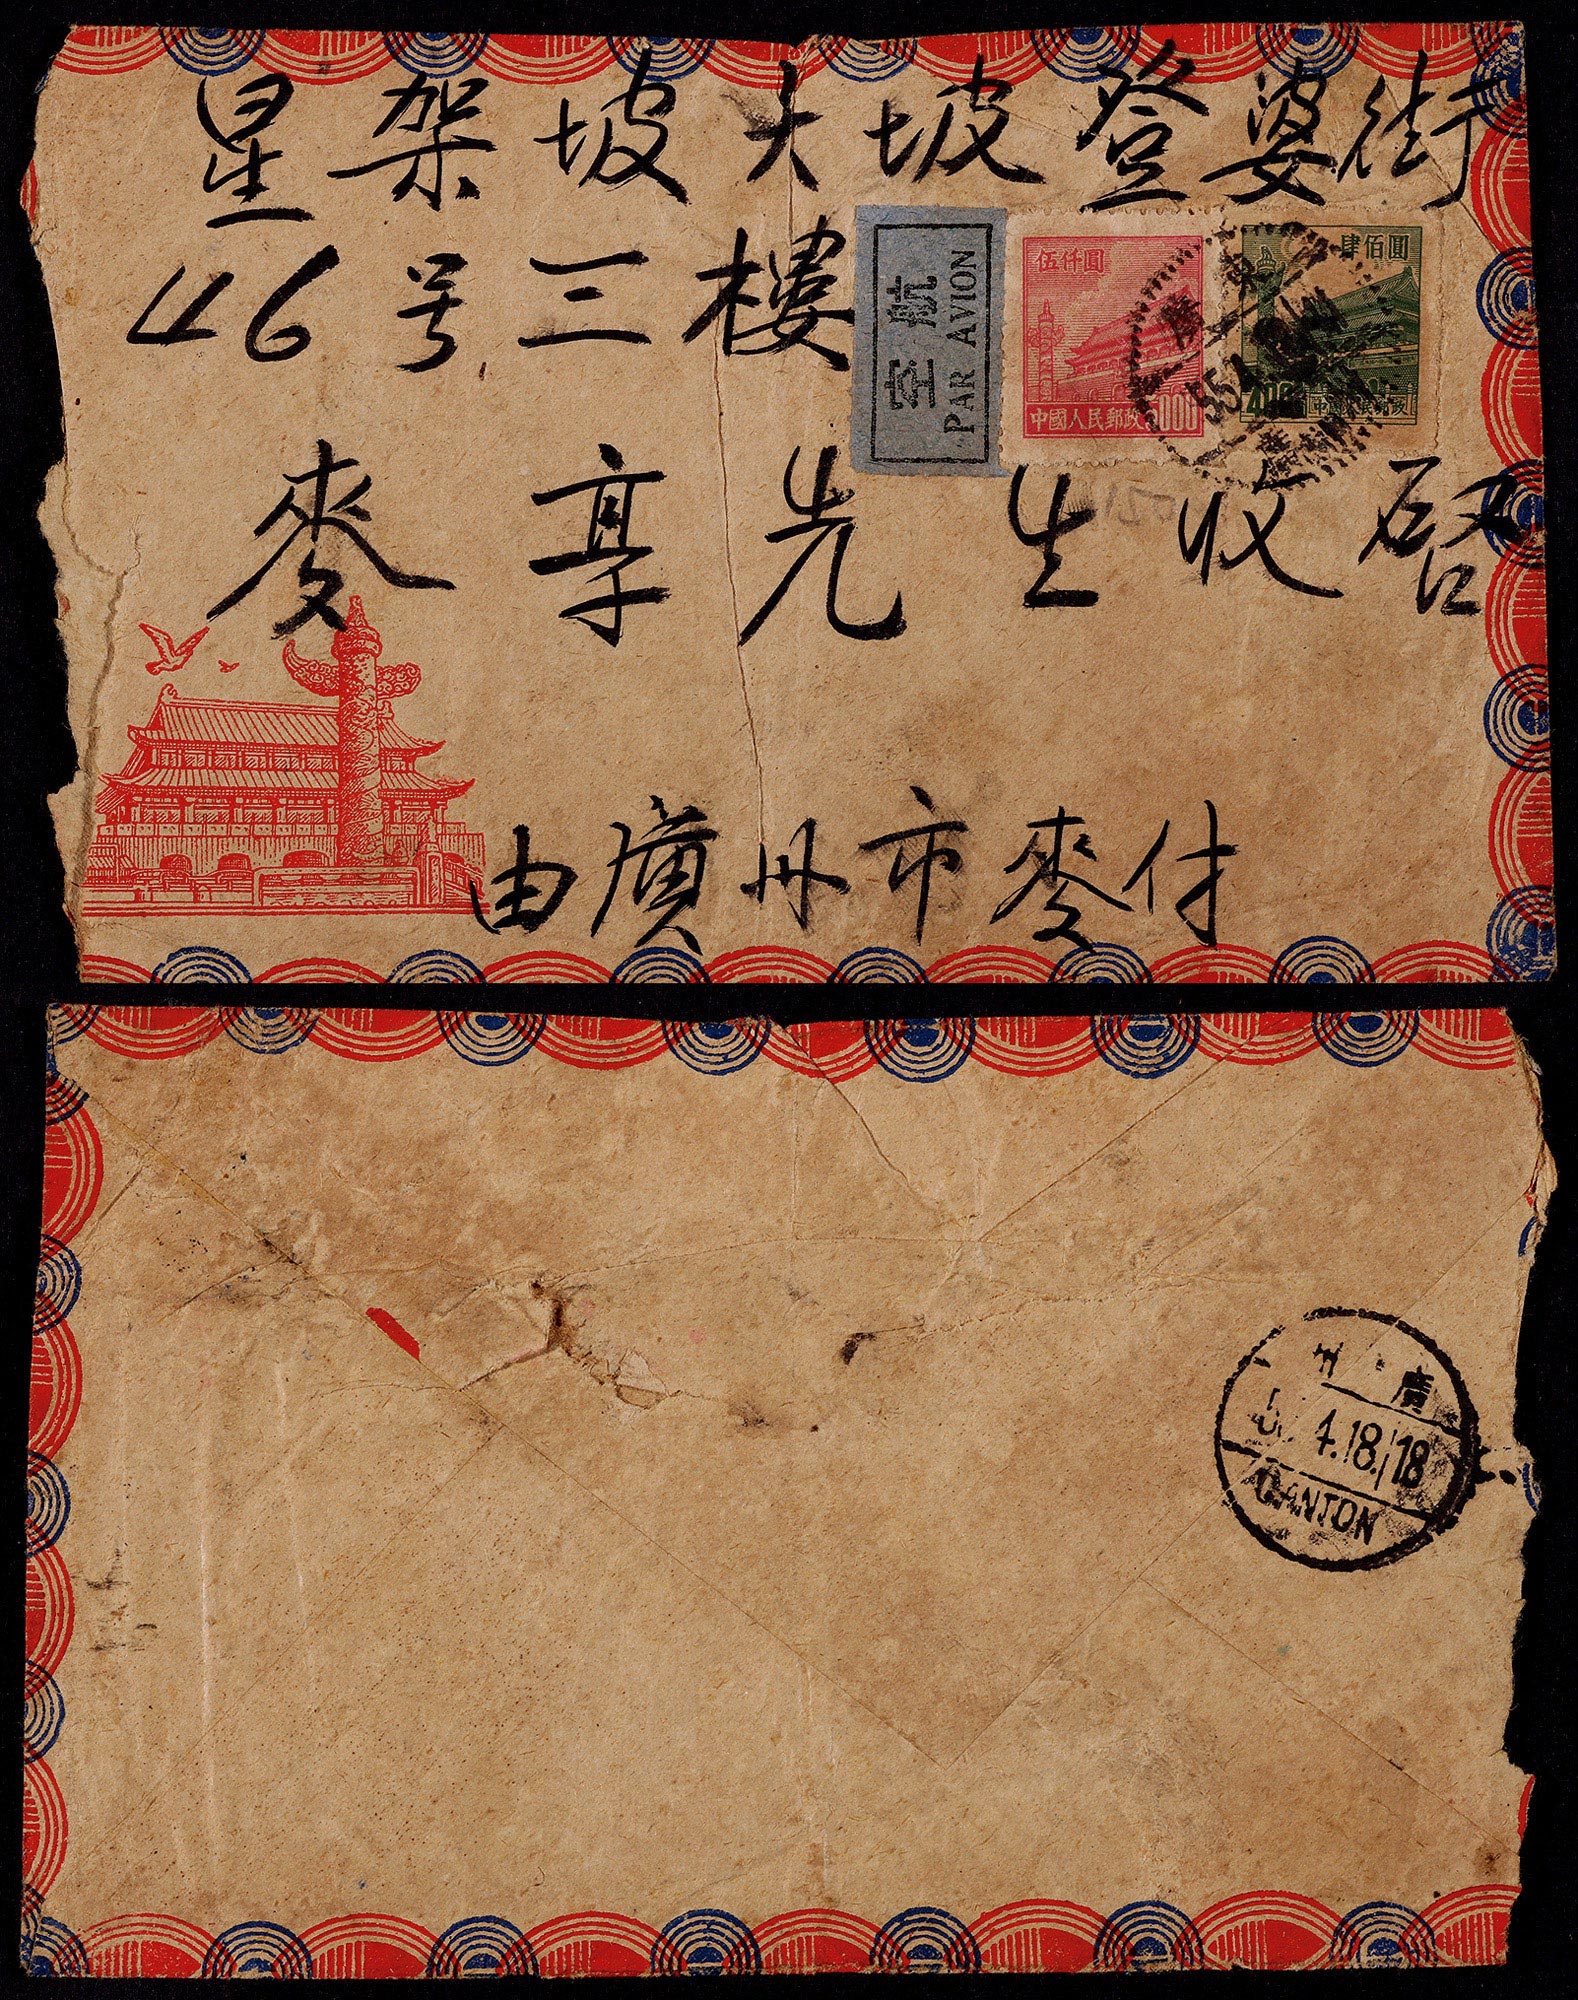 星架坡大坡登婆街
46号三樓
航空
PAR AVION
伍仟圓
中國人民郵政
5000
肆佰圓
中國人民郵政
麥享先生收啓
由廣州市麥付
州 廣
4.18.18
CANTON